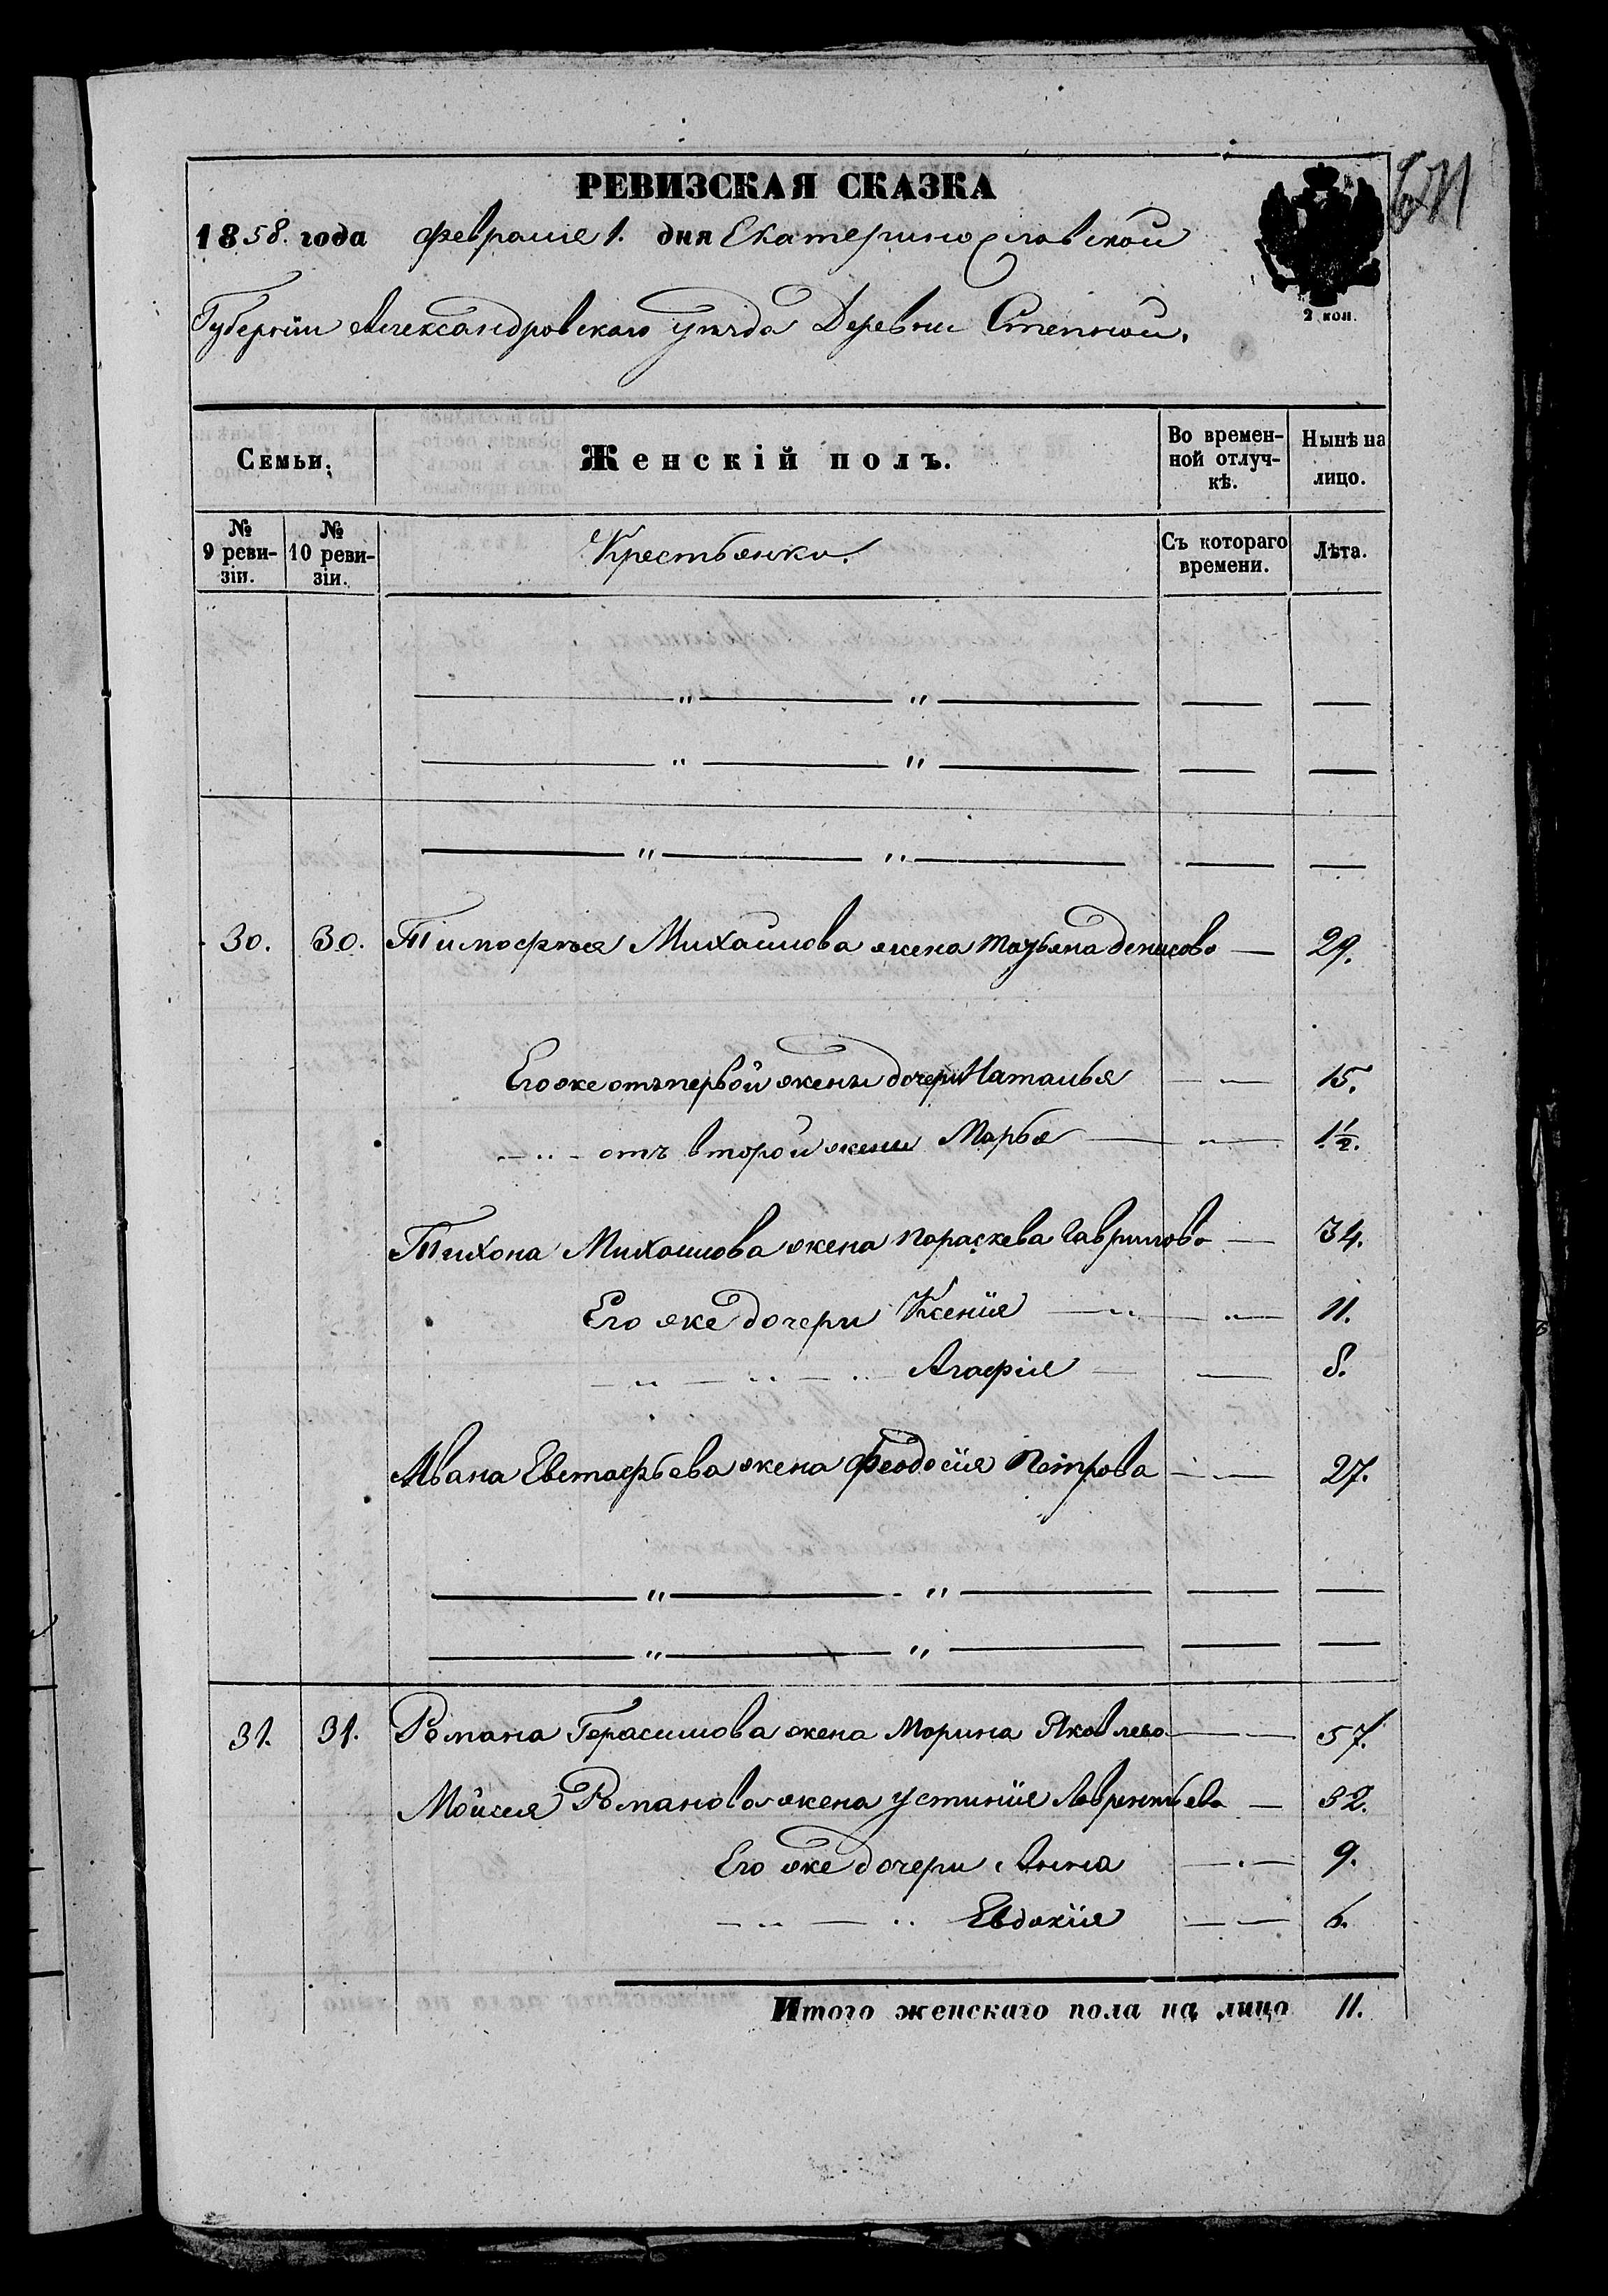 РЕВИЗСКАЯ СКАЗКА
1858. года Февраля 1. дня Екатеринославской
2 коп.
Губерніи Александровскаго уѣзда Деревни Степной.
Семьи. Женскій полъ. Во времен-ной отлуч-кѣ. Нынѣ на лицо.
№ 9 реви-зіи. № 10 реви-зіи. Крестьянки. Съ котораго времени. Лѣта.
— " — " — — —
— " — " — — —
— " — " — — —
30. 30. Тимофѣя Михайлова жена Татьяна Денисова — 29.
Его же отъ первой жены дочери Наталья — — 15.
— " — отъ второй жены Марья — " — 1½.
Тихона Михайлова жена Параскева Гаврилова — 34.
Его же дочери Ксенія — " — " — 11.
— " — " — " — Агафія — — 8.
Ивана Евстафьева жена Феодосія Петрова — — 27.
— " — " — — —
— " — " — — —
31. 31. Романа Герасимова жена Марина Яковлева — — 57.
Мойсея Романова жена Устинія Лаврентьева — 32.
Его же дочери Анна — " — 9.
— " — " Евдокія — — 6.
Итого женскаго пола на лицо 11.